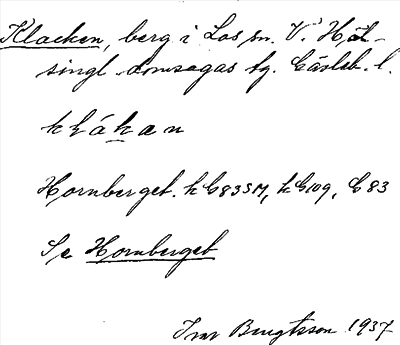 Klacken, berg i Los sn. V. Häl-
singl. domsagas tg. Gävleb. l.
kḷákan
Hornberget. kG83SM, kG109, G83
Se Hornberget
Ivar Bengtsson 1937